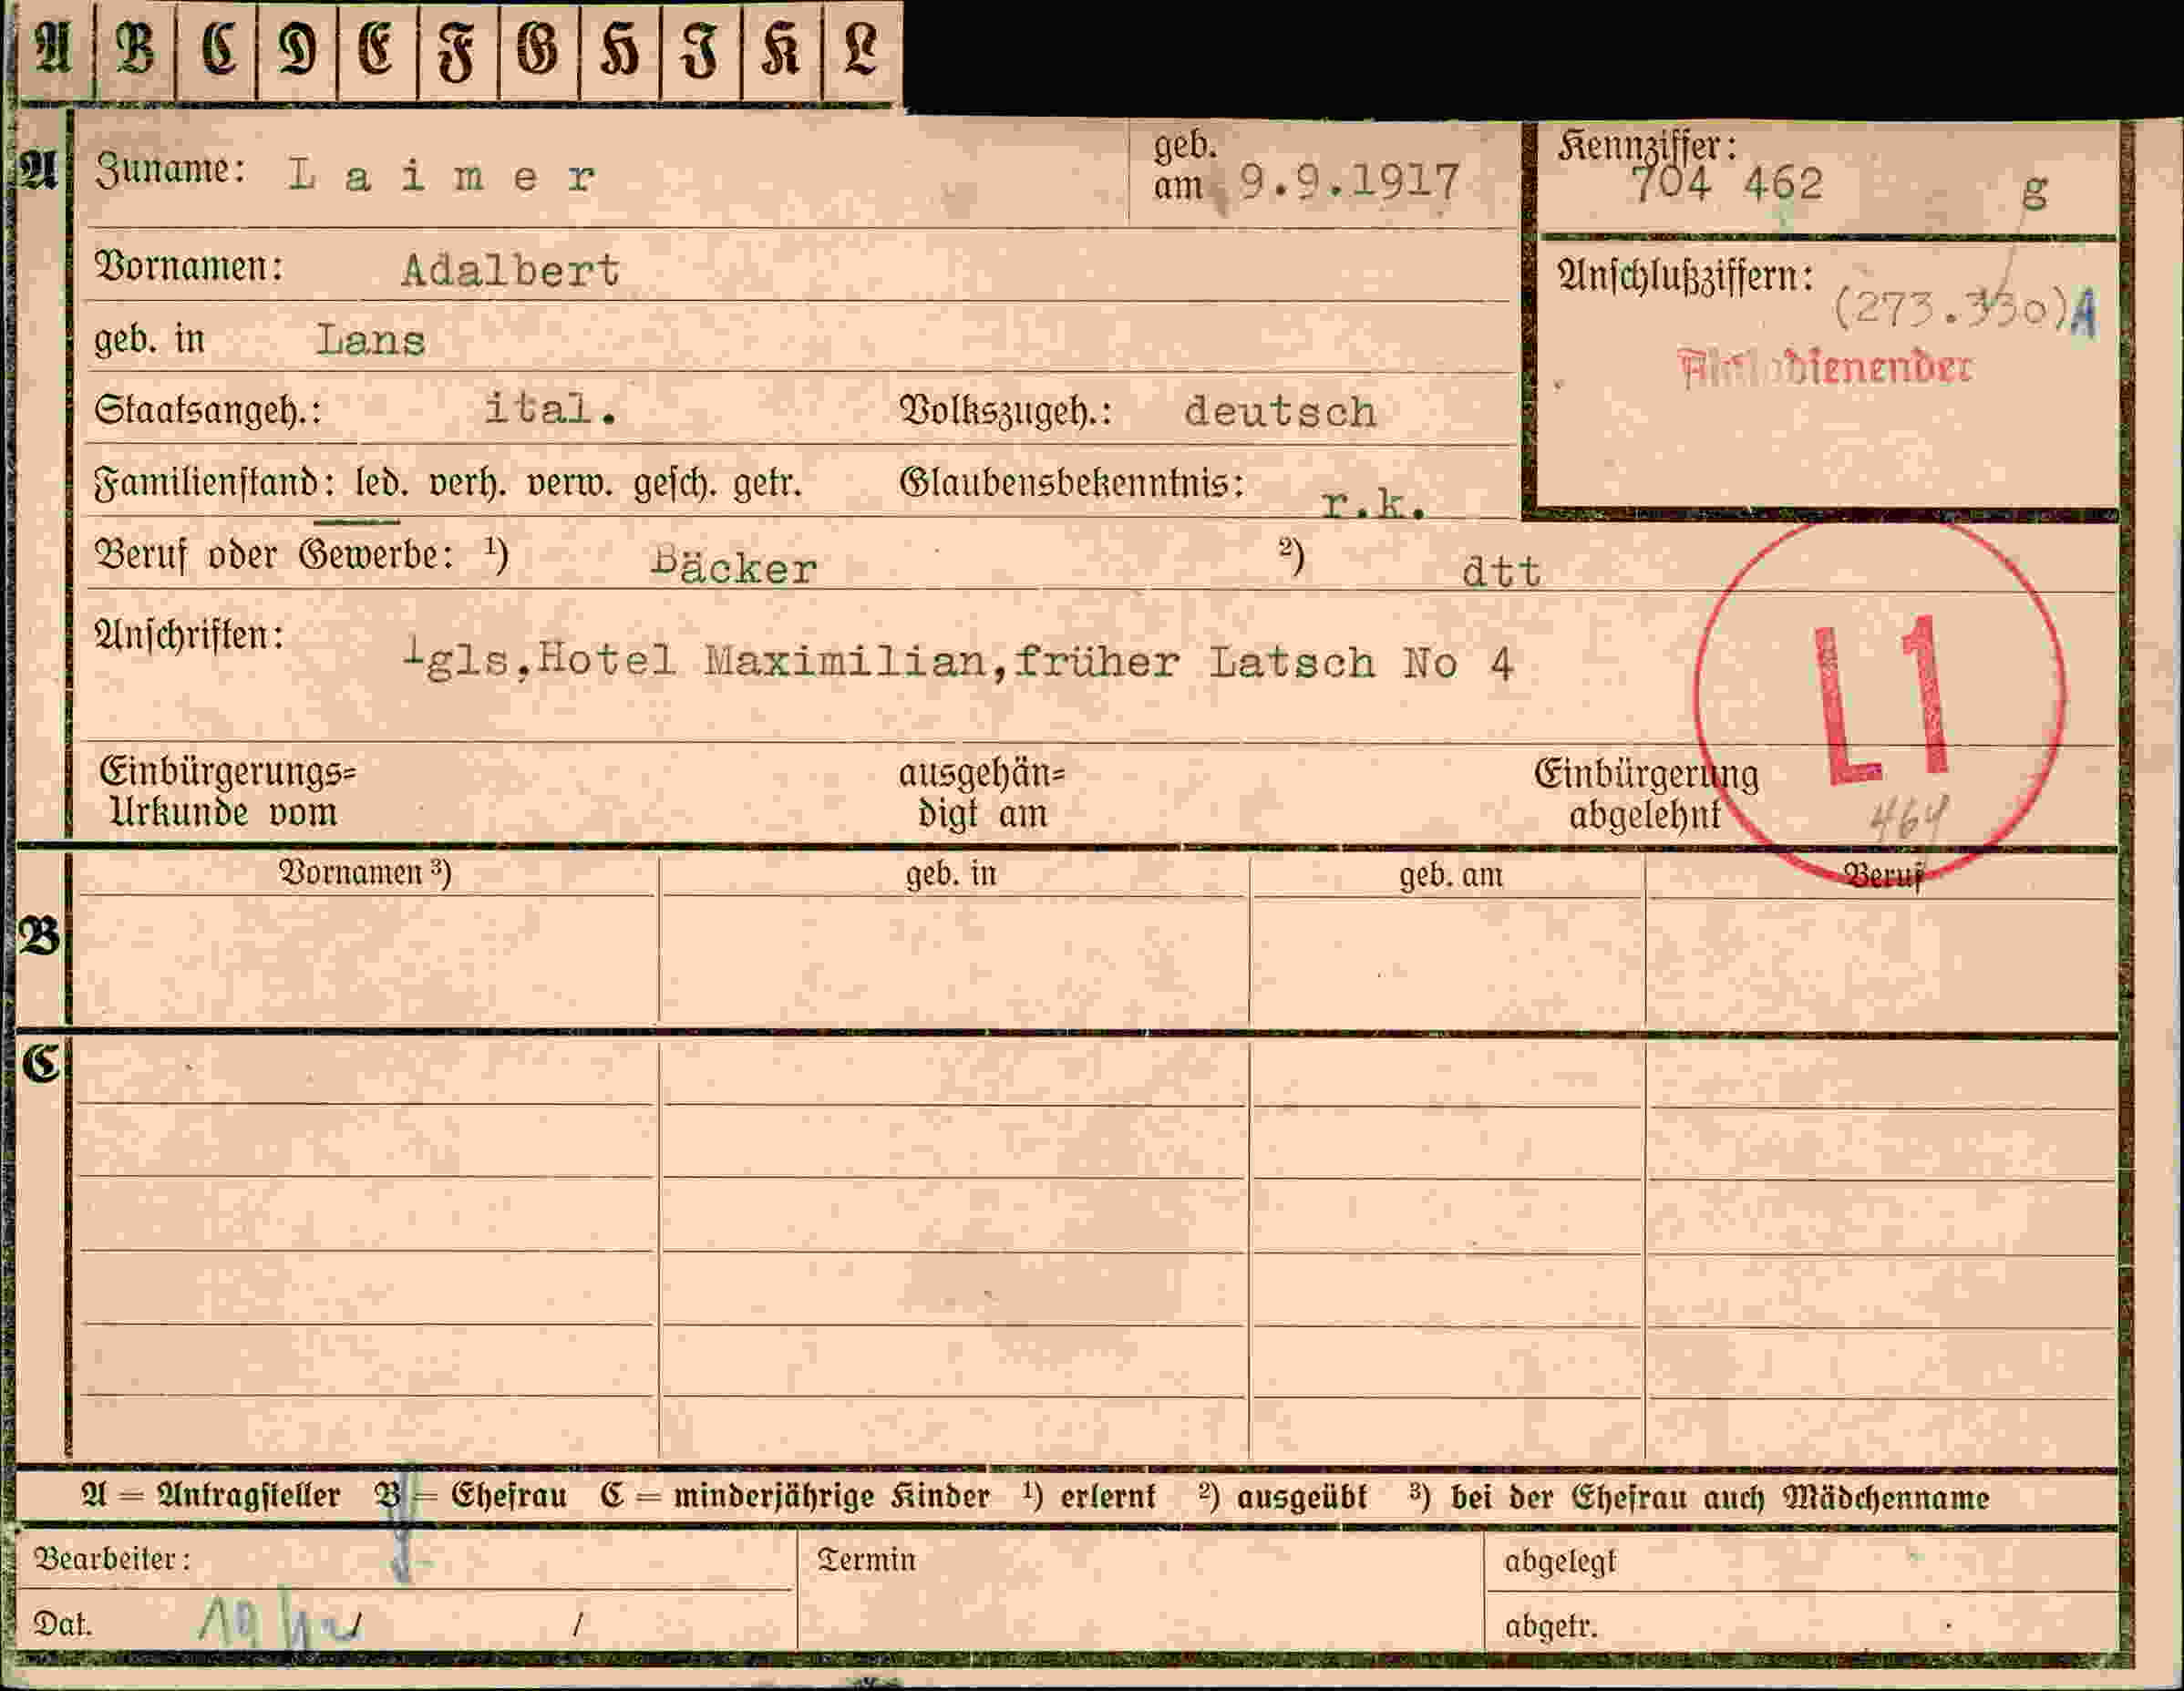 A B C D E F G H I K L
A Zuname: Laimer geb. am 9.9.1917 Kennziffer: 704 462 g
Vornamen: Adalbert Anschlußziffern: (273.330) A
geb. in Lans
Staatsangeh.: ital. Volkszugeh.: deutsch
Familienstand: led. verh. verw. gesch. getr. Glaubensbekenntnis: r.k.
Beruf oder Gewerbe: ¹) Bäcker ²) dtt
Anschriften: Igls,Hotel Maximilian,früher Latsch No 4
L1
Einbürgerungs= ausgehän= Einbürgerung
Urkunde vom digt am abgelehnt 464
Vornamen ³) geb. in geb. am Beruf
B
C
A = Antragsteller B = Ehefrau C = minderjährige Kinder ¹) erlernt ²) ausgeübt ³) bei der Ehefrau auch Mädchenname
Bearbeiter: Termin abgelegt
Dat. / / abgetr.